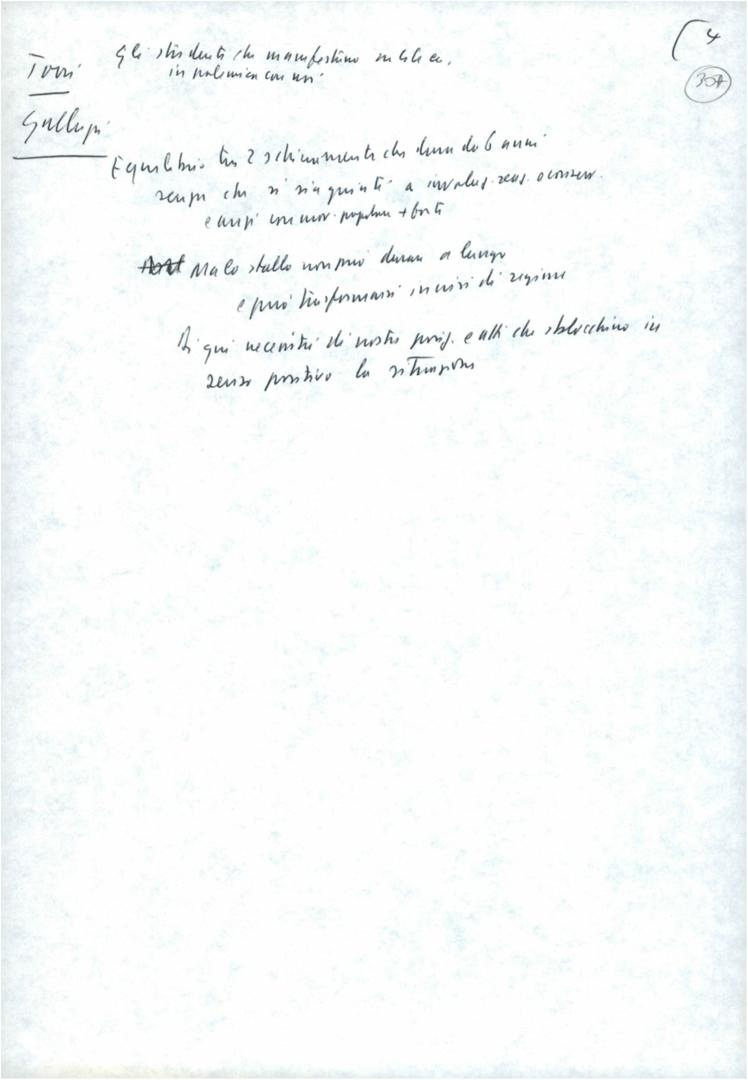 4
307
Torri
Gli studenti che manifestino
in polemica con noi
Galluppi
Equilibrio tra 2 schieramenti che dura da 6 anni
senza che si sia giunti a involuz. reaz. o conserv.
e anzi con mov. popolare + forte
Ma lo stallo non può durare a lungo
e può trasformarsi in crisi di regime
Di qui necessità di nostre prop. e atti che sblocchino in
senso positivo la situazione